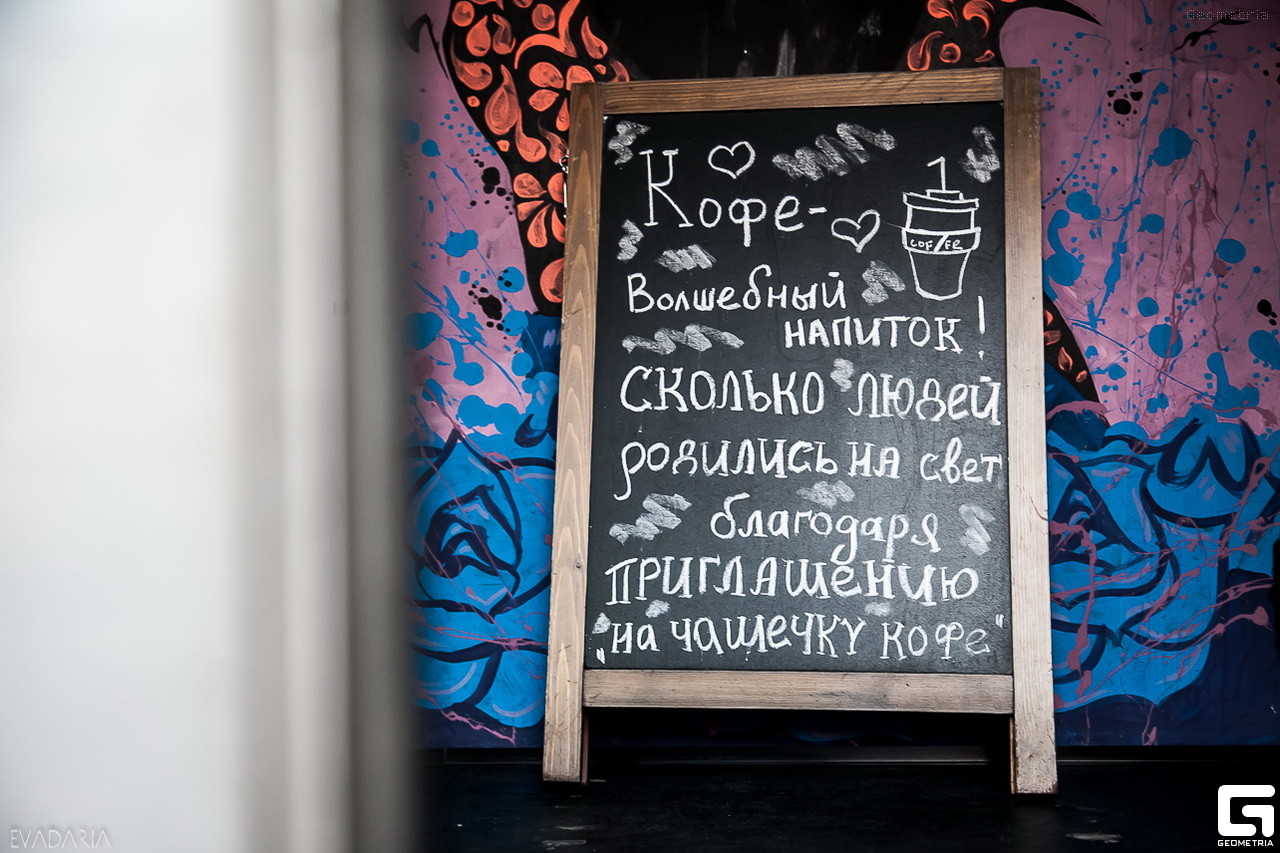 Geometria
Кофе-
COFFER
Волшебный
напиток!
сколько людей
родились на свет
благодаря
приглашению
„на чашечку кофе"
EVADARIA
GEOMETRIA